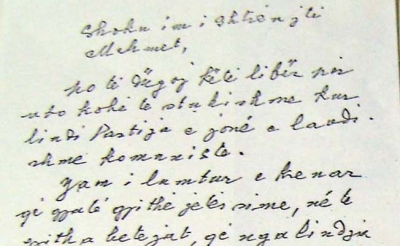 Shoku im i shtrenjti
Mehmet,
po të dërgoj këtë libër për
ato kohë të stuhishme kur
lindi Partija e jonë e lavdi-
shme komuniste.
Jam i lumtur e krenar
që gjatë gjithë jetës sime, në të
gjitha betejat, që nga lindja